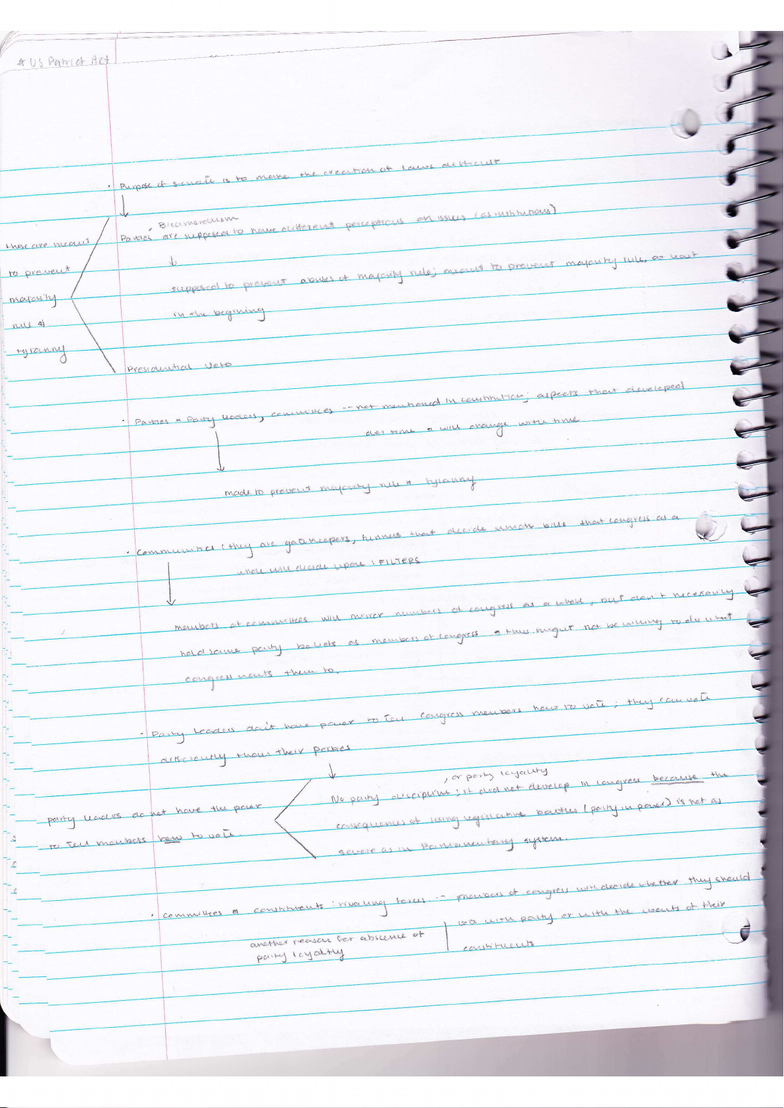 * US Patriot Act
• Purpose of senate is to make the creation of laws difficult
Bicameralism
Parties are supposed to have different perceptions on issues (as institutions)
these are meant
to prevent
majority
rule &
tyranny
supposed to prevent abuses of majority rule; meant to prevent majority rule
in the beginning
Presidential Veto
• Parties & Party leaders, committees -- not mentioned in constitution, aspects that developed
over time & will change with time
made to prevent majority rule & tyranny
• Committees: they are gatekeepers, funnels that decide which bills that congress as a
whole will decide upon; FILTERS
members of committees will mirror members of congress as a whole, but don't necessarily
hold same party beliefs as members of congress & thus might not be willing to do what
congress wants them to.
• Party leaders don't have power to tell congress members how to vote; they can vote
differently than their parties
, or party loyalty
No party discipline; it did not develop in congress because the
consequences of losing legislative battles (party in power) is not as
severe as in Parliamentary system.
party leaders do not have the power
to tell members how to vote.
• committees & constituents: rivaling forces -- members of congress will decide whether they should
vote with party or with the wants of their
constituents
another reason for absence of
party loyalty